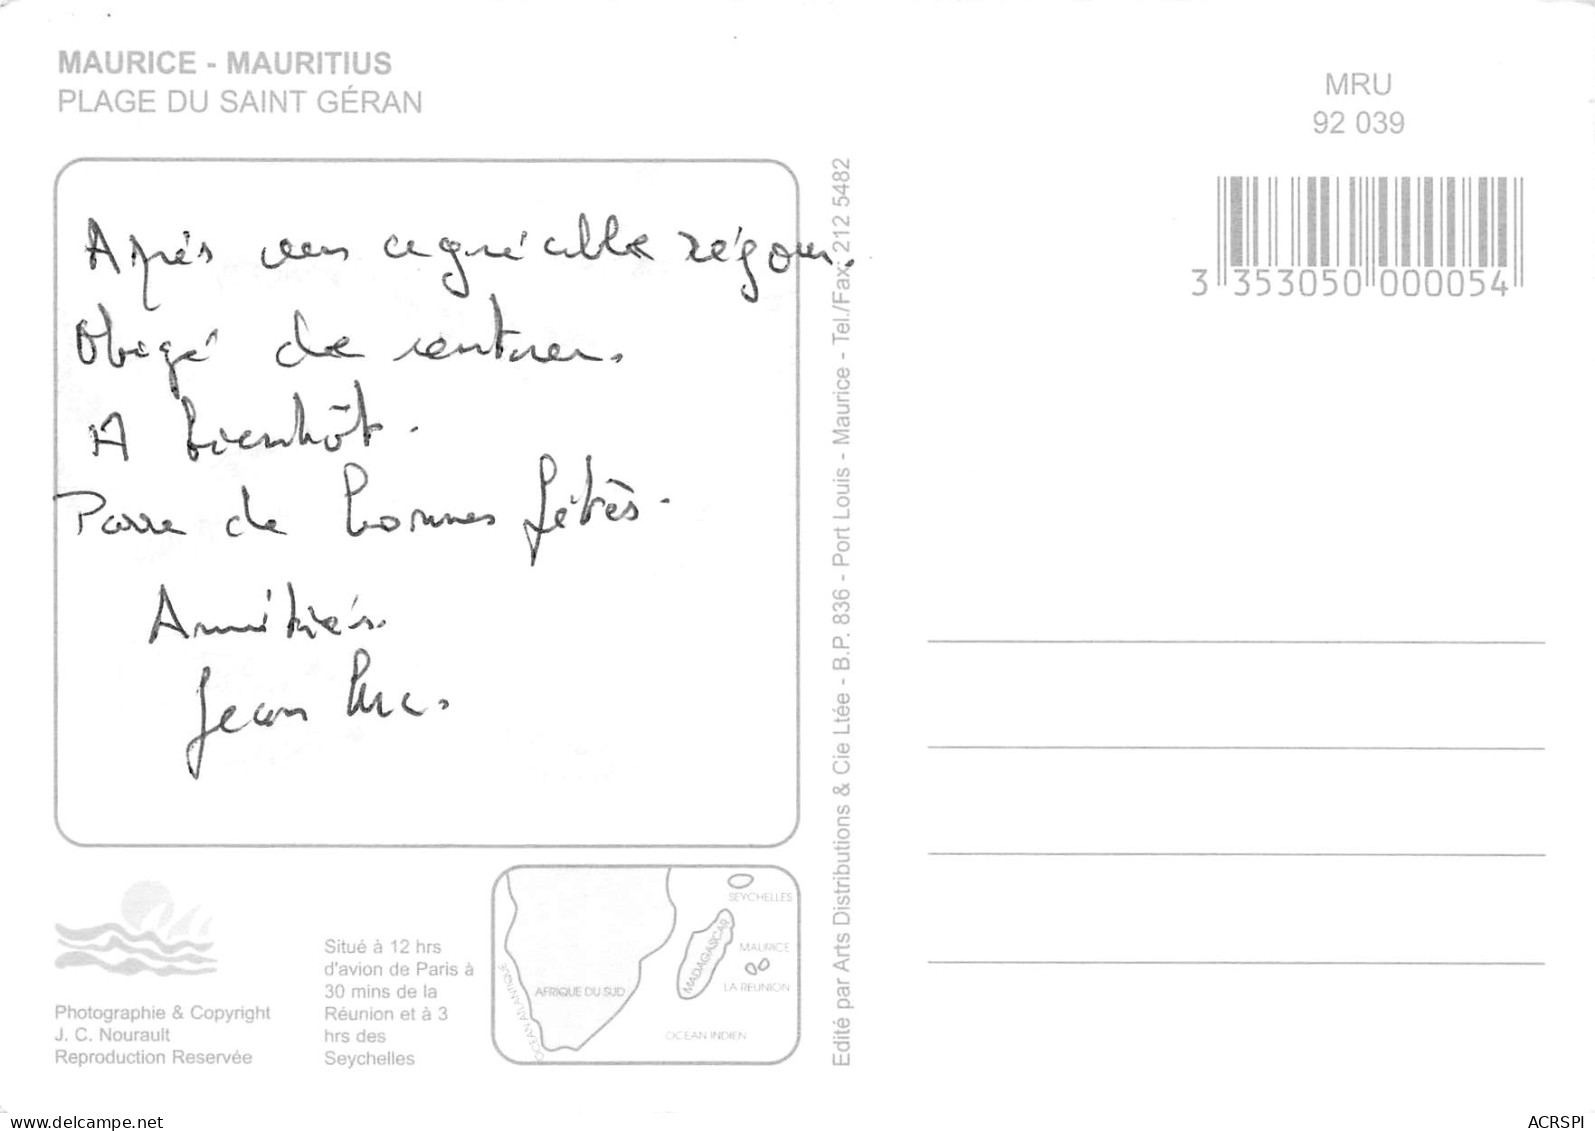 MAURICE - MAURITIUS
PLAGE DU SAINT GÉRAN
MRU
92 039
3 353050 000054
Après un agréable séjour.
Obligé de rentrer.
A bientôt.
Passe de bonnes fêtes.
Amitiés.
Jean Luc.
Edité par Arts Distributions & Cie Ltée - B.P. 836 - Port Louis - Maurice - Tel./Fax. 212 5482
Photographie & Copyright
J. C. Nourault
Reproduction Reservée
Situé à 12 hrs
d'avion de Paris à
30 mins de la
Réunion et à 3
hrs des
Seychelles
SEYCHELLES
MADAGASCAR
MAURICE
LA REUNION
AFRIQUE DU SUD
OCEAN ATLANTIQUE
OCEAN INDIEN
www.delcampe.net
ACRSPI